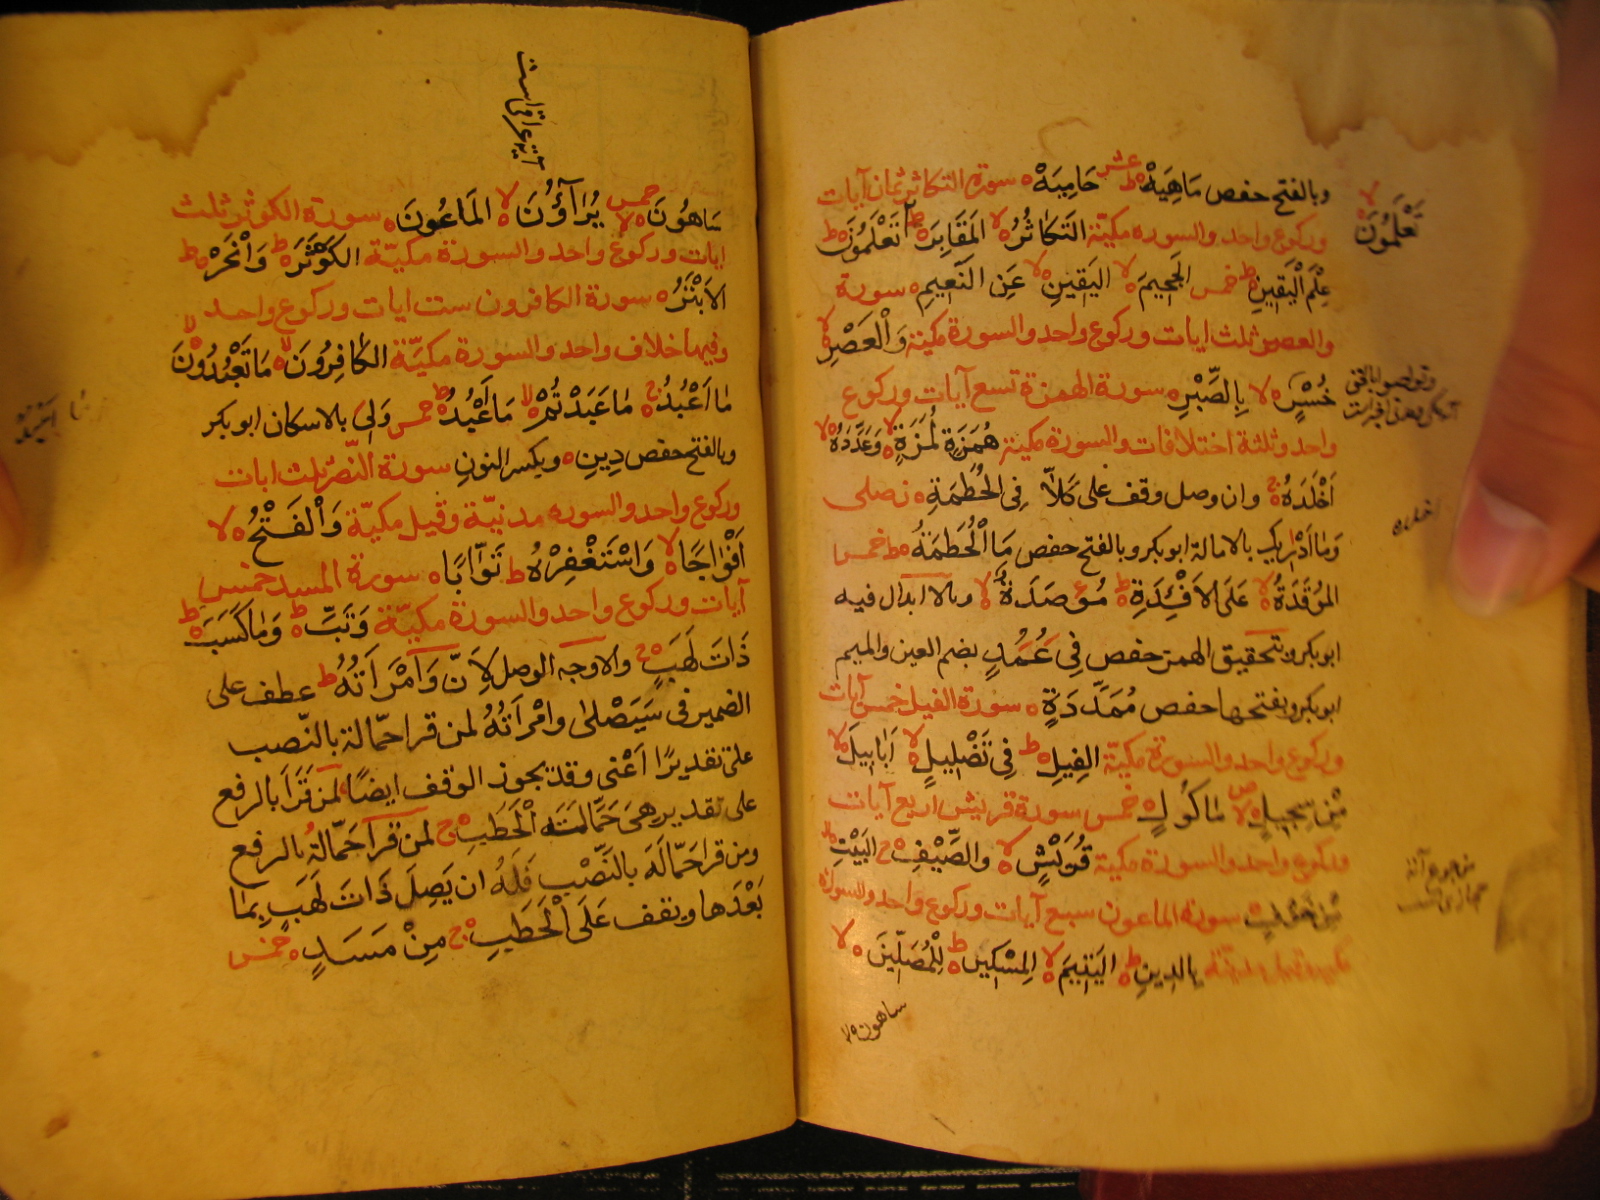 وبالفتح حفص مَاهِيَهْ ط عشر حَامِيَةْ ه سورة التكاثر ثمان آيات
وركوع واحد والسوره مكيّة التَكَاثُرُ لا المَقَابِرَ ط تَعْلَمُونَ ط
تَعْلَمُونَ لا
عِلْمَ الْيَقِينِ ط خمس الجَحِيمَ لا اليَقِينِ لا عَنِ النَعِيمِ ه سورة
والعصر ثلث ايات وركوع واحد والسورة مكية وَالْعَصْرِ لا
خُسْرٍ لا بِالصَّبْرِ ه سورة الهمزة تسع آيات وركوع
واحد وثلثة اختلافات والسورة مكية هُمَزَةٍ لُمَزَةٍ لا وَعَدَّدَهُ لا
اَخْلَدَهُ ج وان وصل وقف على كَلاَّ فِى الحُطَمَةِ ه نصلى
اخلده
وَمَا اَدْرٰيكَ بالامالة ابوبكر وبالفتح حفص مَا الْحُطَمَةُ ط خمس
المُوْقَدَةُ لا عَلَى الاَفْئِدَةِ ط مُؤصَدَةٌ لا وبالابدال فيه
ابوبكر وبتحقيق الهمز حفص فِى عُمُدٍ بضم العين والميم
ابوبكر وبفتحها حفص مُمَدَّدَةٍ ه سورة الفيل خمس آيات
وركوع واحد والسورة مكيّة الفِيلِ ط فِى تَضْلِيلٍ لا اَبَابِيلَ لا
مِّن سِجِيلٍ لا مَاكُولٍ ه خمس سورة قريش اربع آيات
وركوع واحد والسورة مكية قُرَيْشٍ لا وَالصَّيْفِ ج البَيْتِ لا
مِّنْ خَوْفٍ سورة الماعون سبع آيات وركوع واحد والسورة
بِالدِينِ ط اليَتِيمَ لا المِسْكِينِ ط لِلْمُصَلّينَ لا
ساهون لا
سَاهُونَ لا خمس يُرَآؤُنَ لا المَاعُونَ ه سورة الكوثر ثلث
ايات وركوع واحد والسورة مكيّة الكَوْثَرَ ط وَانْحَرْ ط
الاَبْتَرُ ه سورة الكافرون ست ايات وركوع واحد
وفيها خلاف واحد والسورة مكيّة الكَافِرُونَ لا مَا تَعْبُدُوْنَ لا
مَا اَعْبُدُ ج مَا عَبَدْتُمْ لا مَا اَعْبُدُ ط خمس وَلِىَ بالاسكان ابوبكر
وبالفتح حفص دِينِ ه وبكسر النون سورة النصر ثلث ايات
وركوع واحد والسوره مدنيّة وقيل مكيّة وَالْفَتْحُ لا
اَفْوَاجَا لا وَاسْتَغْفِرْهُ ط تَوَّابًا ه سورة المسد خمس
آيات وركوع واحد والسورة مكيّة وَتَبَّ ط وَمَا كَسَبَ ط
ذَاتَ لَهَبٍ ج والاوجه الوصل لِاَنّ وَامْرَاَتُهُ ط عطف على
الضمير فى سَيَصْلٰى وامْرَاَتُهُ لمن قرا حمّالة بالنّصب
على تقدير اَعْنى وقد يجوز الوقف ايضًا لمن قَرَأَ بالرفع
على تقدير هى حَمَّالَةَ الْحَطَبِ ج لمن قرأ حَمّالةُ بالرفع
ومن قرا حَمّالَةَ بالنَّصْب فَلَهُ ان يَصِلَ ذَاتَ لَهَبٍ بِمَا
بَعْدَها ويقف عَلَى الْحَطَبِ ج مِنْ مَسَدٍ ه خمس